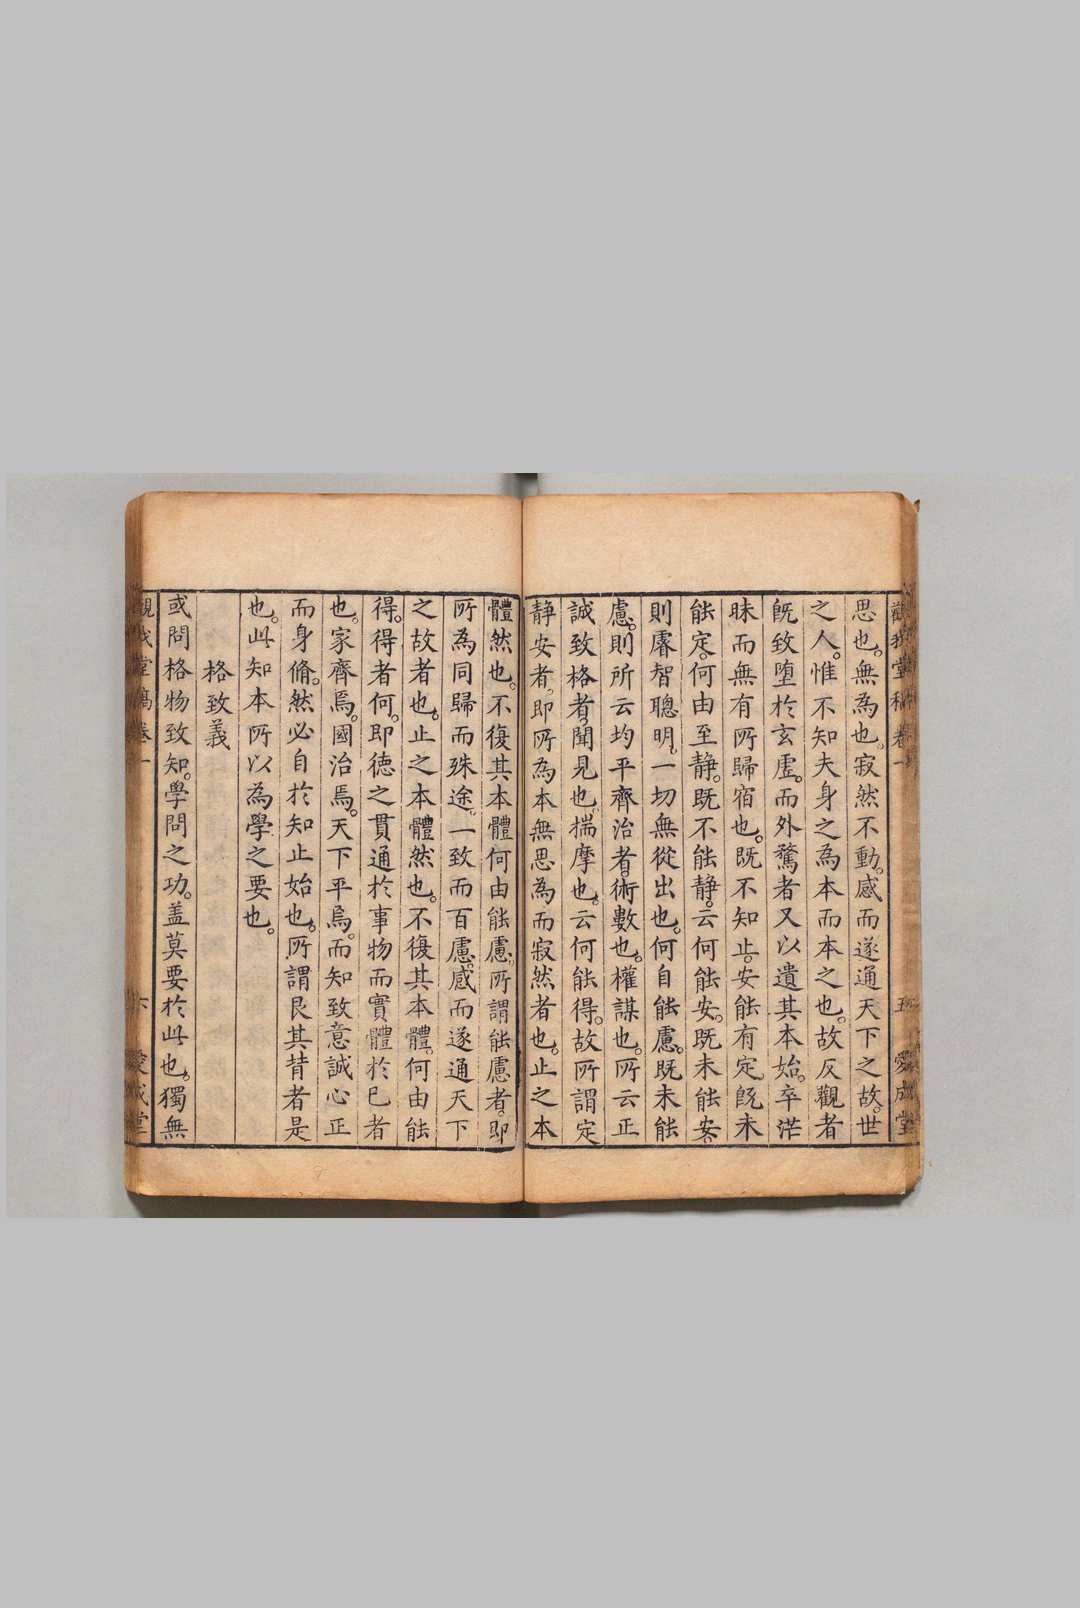 觀我堂稿卷一 五 愛成堂
思也。無為也。寂然不動。感而遂通天下之故。世
之人。惟不知夫身之為本而本之也。故反觀者
旣致墮於玄虛。而外騖者又以遺其本始。卒茫
昧而無有所歸宿也。旣不知止。安能有定旣未
能定。何由至靜。旣不能靜。云何能安。旣未能安
則睿智聰明。一切無從出也。何自能慮。旣未能
慮。則所云均平齊治者。術數也。權謀也。所云正
誠致格者。聞見也。揣摩也。云何能得。故所謂定
靜安者。即所為本無思為而寂然者也。止之本
體然也。不復其本體何由能慮。所謂能慮者。即
所為同歸而殊途。一致而百慮。感而遂通天下
之故者也。止之本體然也。不復其本體。何由能
得。得者何。即德之貫通於事物而實體於己者
也。家齊焉。國治焉。天下平焉。而知致意誠心正
而身脩。然必自於知止始也。所謂艮其背者是
也。此知本所以為學之要也。
格致義
或問格物致知。學問之功。盖莫要於此也。獨無
觀我堂稿卷一 六 愛成堂